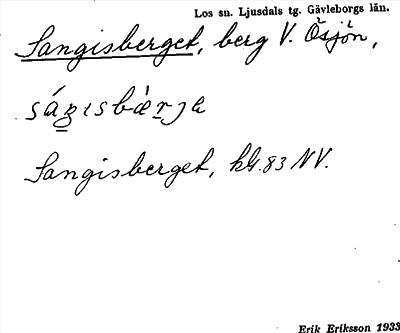 Los sn. Ljusdals tg. Gävleborgs län.
Sangisberget, berg V. Ösjön,
Sangisberget, kbl. 83 NV.
Erik Eriksson 1933